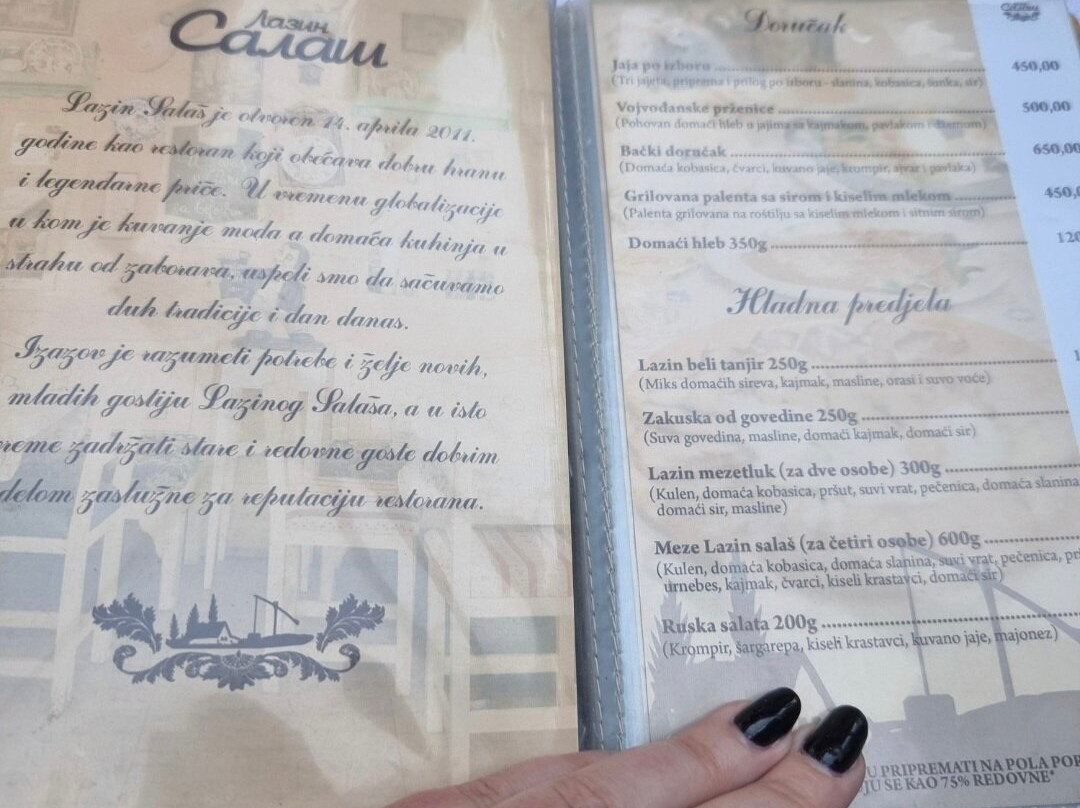 Лазин
Салаш
Lazin Salaš je otvoren 14. aprila 2011.
godine kao restoran koji obećava dobru hranu
i legendarne priče. U vremenu globalizacije
u kom je kuvanje moda a domaća kuhinja u
strahu od zaborava, uspeli smo da sačuvamo
duh tradicije i dan danas.
Izazov je razumeti potrebe i želje novih,
mladih gostiju Lazinog Salaša, a u isto
vreme zadržati stare i redovne goste dobrim
delom zaslužne za reputaciju restorana.
Doručak
Jaja po izboru 450,00
(Tri jajeta, priprema i prilog po izboru - slanina, kobasica, šunka, sir)
Vojvođanske prženice 500,00
(Pohovan domaći hleb u jajima sa kajmakom, pavlakom i džemom)
Bački doručak 650,00
(Domaća kobasica, čvarci, kuvano jaje, krompir, ajvar i pavlaka)
Grilovana palenta sa sirom i kiselim mlekom 450,0
(Palenta grilovana na roštilju sa kiselim mlekom i sitnim sirom)
Domaći hleb 350g 120
Hladna predjela
Lazin beli tanjir 250g 1
(Miks domaćih sireva, kajmak, masline, orasi i suvo voće)
Zakuska od govedine 250g
(Suva govedina, masline, domaći kajmak, domaći sir)
Lazin mezetluk (za dve osobe) 300g
(Kulen, domaća kobasica, pršut, suvi vrat, pečenica, domaća slanina
domaći sir, masline)
Meze Lazin salaš (za četiri osobe) 600g
(Kulen, domaća kobasica, domaća slanina, suvi vrat, pečenica, pr
urnebes, kajmak, čvarci, kiseli krastavci, domaći sir)
Ruska salata 200g
(Krompir, šargarepa, kiseli krastavci, kuvano jaje, majonez)
U PRIPREMATI NA POLA POR
JU SE KAO 75% REDOVNE*